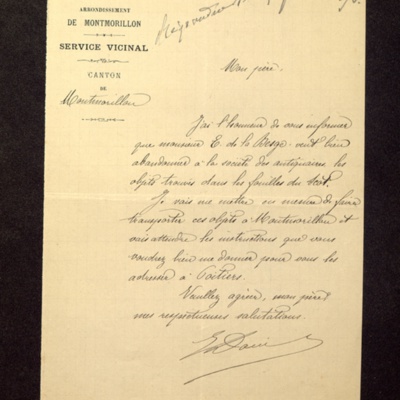 ARRONDISSEMENT
DE MONTMORILLON
SERVICE VICINAL
CANTON
DE
Montmorillon
Mon père,
J'ai l'honneur de vous informer
que monsieur E. de la Besge veut bien
abandonner à la société des antiquaires les
objets trouvés dans les fouilles du
Je vais me mettre en mesure de faire
transporter ces objets à Montmorillon et
vais attendre les instructions que vous
voudrez bien me donner pour vous les
adresser à Poitiers.
Veuillez agréer, mon père
mes respectueuses salutations.